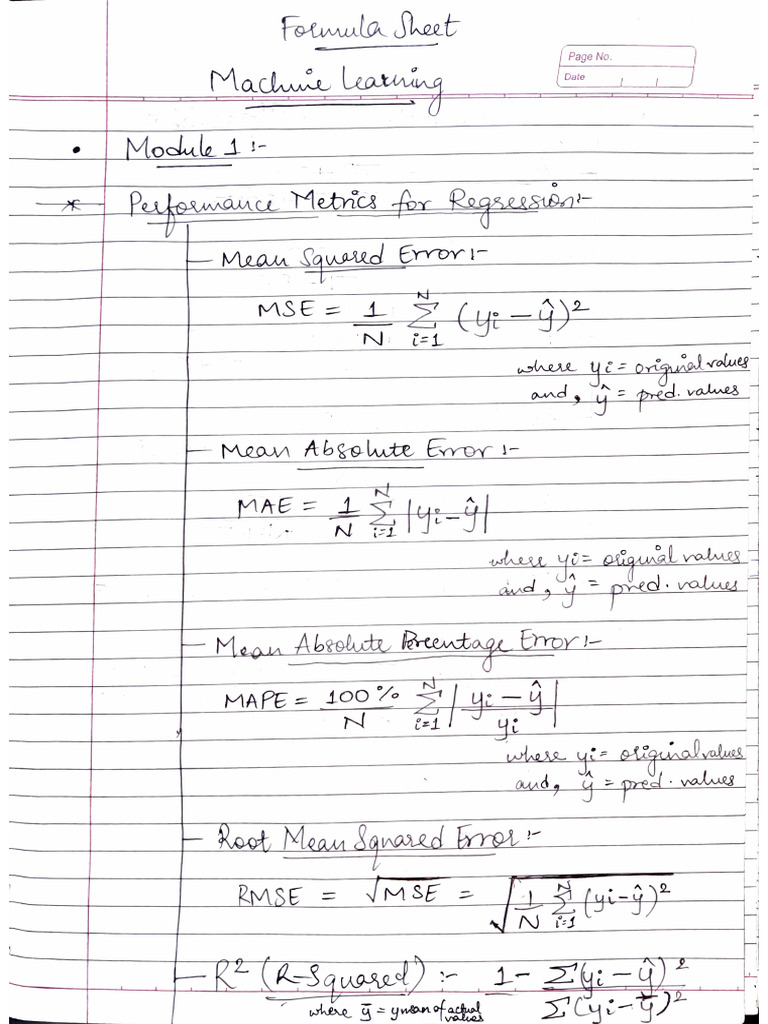 Formula Sheet
Page No.
Machine Learning
Date
• Module 1 :-
* Performance Metrics for Regression:-
Mean Squared Error:-
MSE = 1/N Σ_{i=1}^{N} (yi - ŷ)²
where yi = original values
and, ŷ = pred. values
Mean Absolute Error :-
MAE = 1/N Σ_{i=1}^{N} |yi - ŷ|
where yi = original values
and, ŷ = pred. values
Mean Absolute Percentage Error:-
MAPE = 100%/N Σ_{i=1}^{N} |(yi - ŷ)/yi|
where yi = original values
and, ŷ = pred. values
Root Mean Squared Error:-
RMSE = √MSE = √(1/N Σ_{i=1}^{N} (yi - ŷ)²)
R² (R-Squared) :- 1 - Σ(yi - ŷ)²/Σ(yi - ȳ)²
where ȳ = ymean of actual values